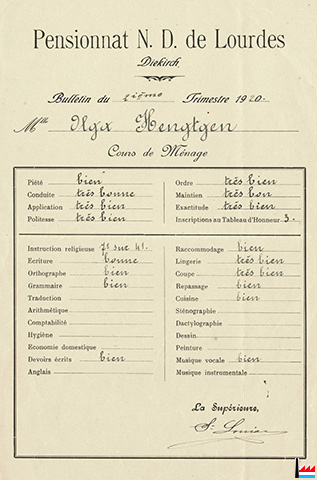 Pensionnat N. D. de Lourdes
Diekirch
Bulletin du 2ième Trimestre 1920.
Mlle Olga Hengtgen
Cours de Ménage
Piété bien
Conduite très bonne
Application très bien
Politesse très bien
Ordre très bien
Maintien très bon
Exactitude très bien
Inscriptions au Tableau d'Honneur 3.
Instruction religieuse sur 41.
Ecriture bonne
Orthographe bien
Grammaire bien
Traduction
Arithmétique
Comptabilité
Hygiène
Economie domestique
Devoirs écrits bien
Anglais
Raccommodage bien
Lingerie très bien
Coupe très bien
Repassage bien
Cuisine bien
Sténographie
Dactylographie
Dessin
Peinture
Musique vocale bien
Musique instrumentale
La Supérieure,
Sr Louise